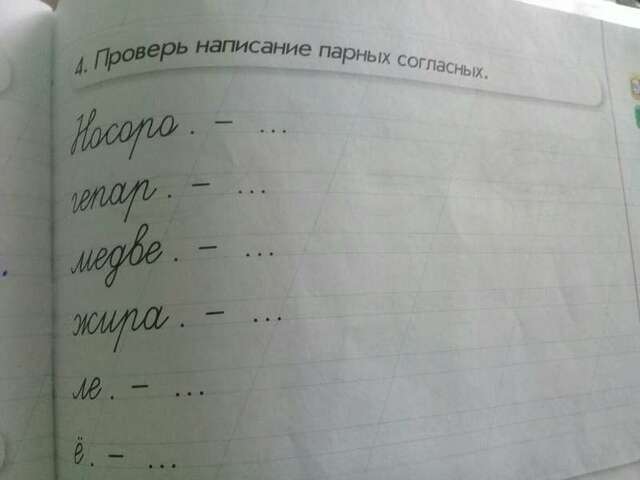 4. Проверь написание парных согласных.
Носоро . – ...
гепар . – ...
медве . – ...
жира . – ...
ле . – ...
ё . – ...